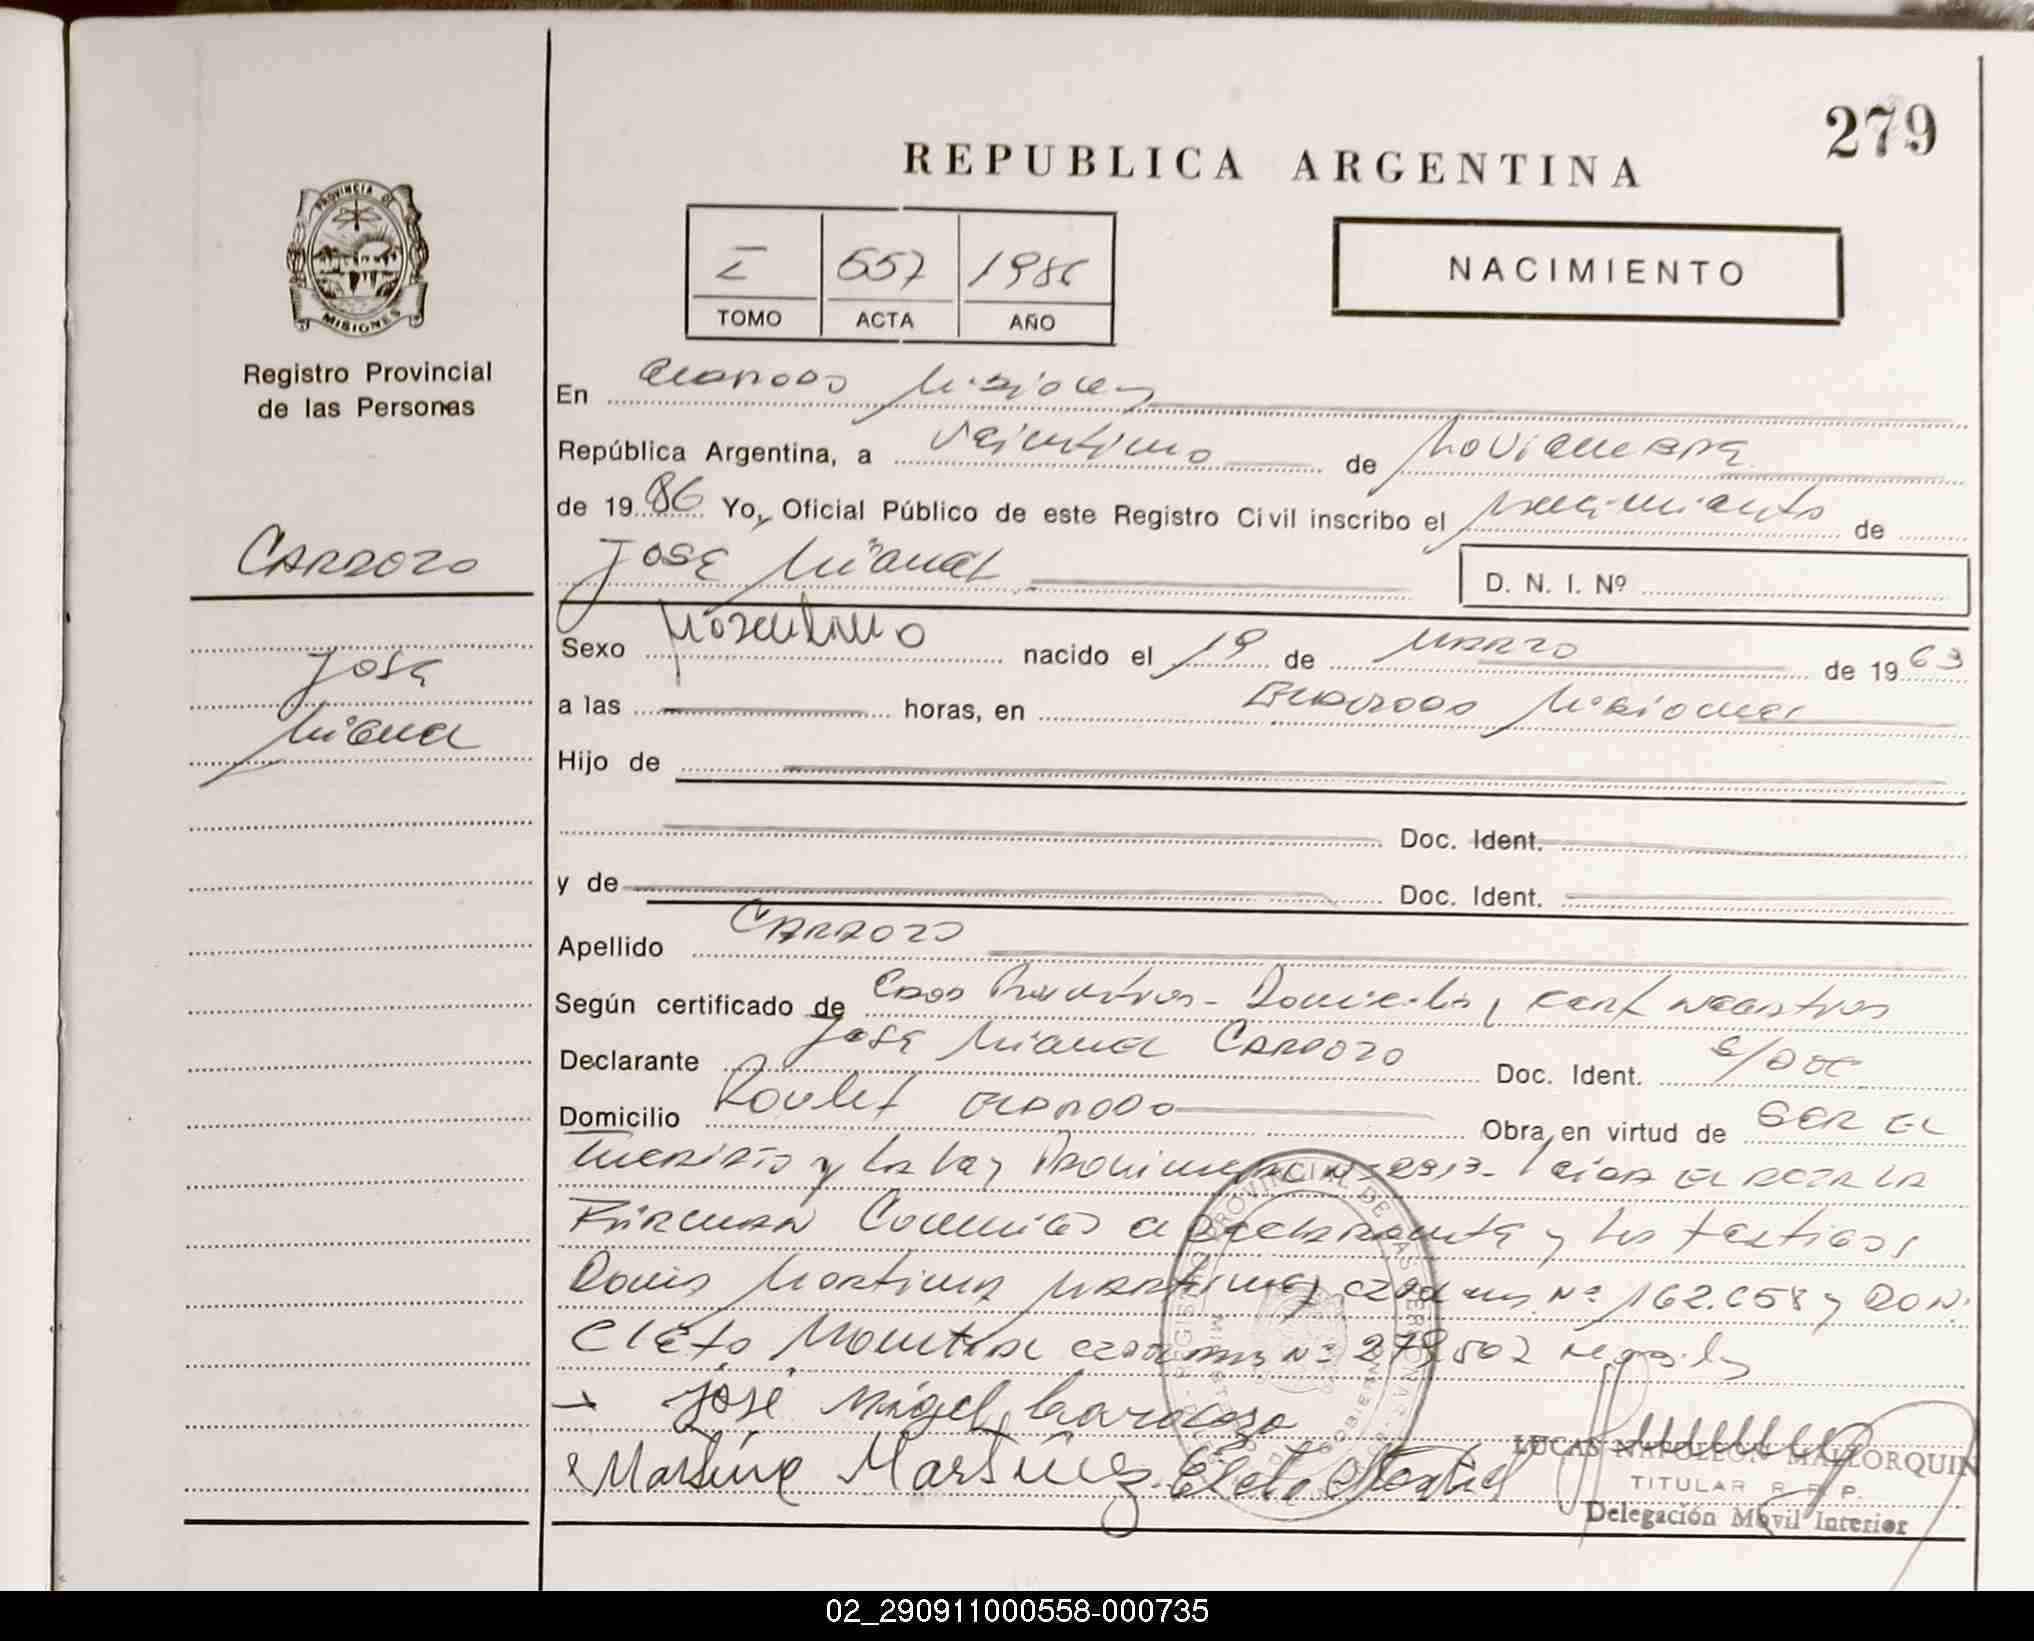 279
REPUBLICA ARGENTINA
NACIMIENTO
I 557 1986
TOMO ACTA AÑO
PROVINCIA DE
MISIONES
Registro Provincial
de las Personas
CARDOZO
Jose
Miguel
En Misiones
República Argentina, a Veintiuno de Noviembre
de 1986 Yo, Oficial Público de este Registro Civil inscribo el nacimiento de
Jose Miguel
D. N. I. Nº
Sexo Masculino nacido el 19 de Marzo de 1963
a las horas, en Misiones
Hijo de
Doc. Ident.
y de Doc. Ident.
Apellido CARDOZO
Según certificado de
Declarante Jose Miguel CARDOZO Doc. Ident. S/DOC
Domicilio Obra en virtud de SER EL
y la Ley Provincial Nº 2913- Leida EL ACTA LA
Firman Conmigo el declarante y los testigos
Martina Martinez Nº 162.658 y DON.
Cleto Montiel Nº 279.507
José Migel Cardozo
Martina Martinez Cleto Montiel
LUCAS NAPOLEON MALLORQUIN
TITULAR R. P. P.
Delegación Móvil Interior
02_290911000558-000735